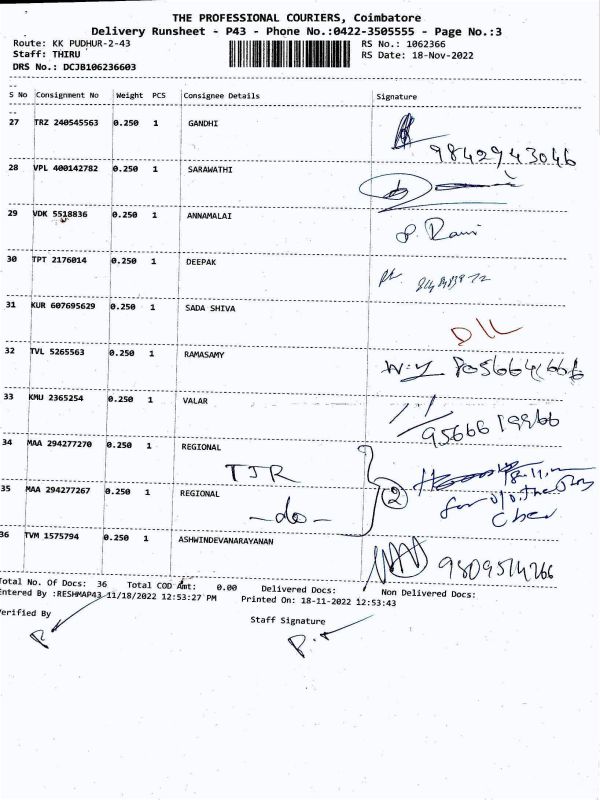 THE PROFESSIONAL COURIERS, Coimbatore
Delivery Runsheet - P43 - Phone No.:0422-3505555 - Page No.:3
Route: KK PUDHUR-2-43 RS No.: 1062366
Staff: THIRU RS Date: 18-Nov-2022
DRS No.: DCJB106236603
S No Consignment No Weight PCS Consignee Details Signature
27 TRZ 240545563 0.250 1 GANDHI
9842943046
28 VPL 400142782 0.250 1 SARAWATHI
29 VDK 5518836 0.250 1 ANNAMALAI
P. Rani
30 TPT 2176014 0.250 1 DEEPAK
31 KUR 607695629 0.250 1 SADA SHIVA
D/L
32 TVL 5265563 0.250 1 RAMASAMY
33 KMU 2365254 0.250 1 VALAR
9566619966
34 MAA 294277270 0.250 1 REGIONAL
TJR
2
35 MAA 294277267 0.250 1 REGIONAL
-do-
for o/o. the
36 TVM 1575794 0.250 1 ASHWINDEVANARAYANAN
Total No. Of Docs: 36 Total COD Amt: 0.00 Delivered Docs: Non Delivered Docs:
Entered By :RESHMAP43 11/18/2022 12:53:27 PM Printed On: 18-11-2022 12:53:43
Verified By Staff Signature